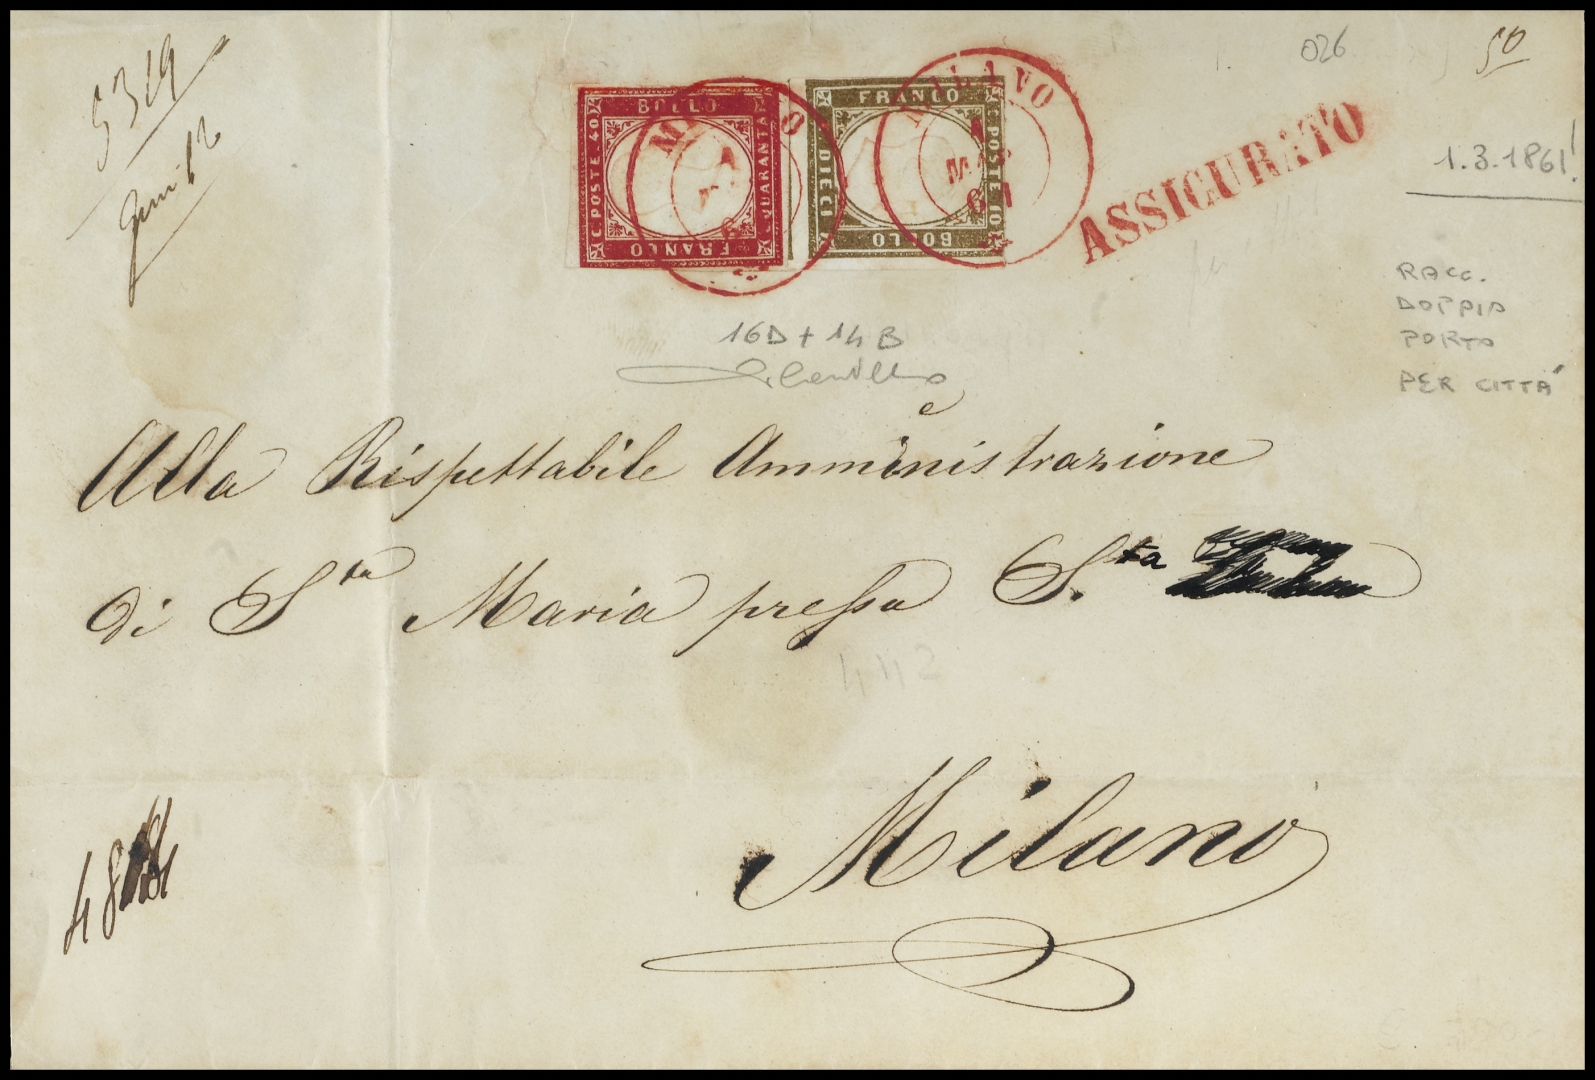 5319
026
50
BOLLO
C. POSTE. 40
QUARANTA
FRANCO
FRANCO
C. POSTE 10
DIECI
BOLLO
MILANO
MILANO
1
MAR
61
ASSICURATO
1.3.1861!
RACC.
DOPPIO
PORTO
PER CITTÁ
16D + 14B
Alla Rispettabile Amministrazione
di S.ta Maria presso S.ta
442
Milano
48